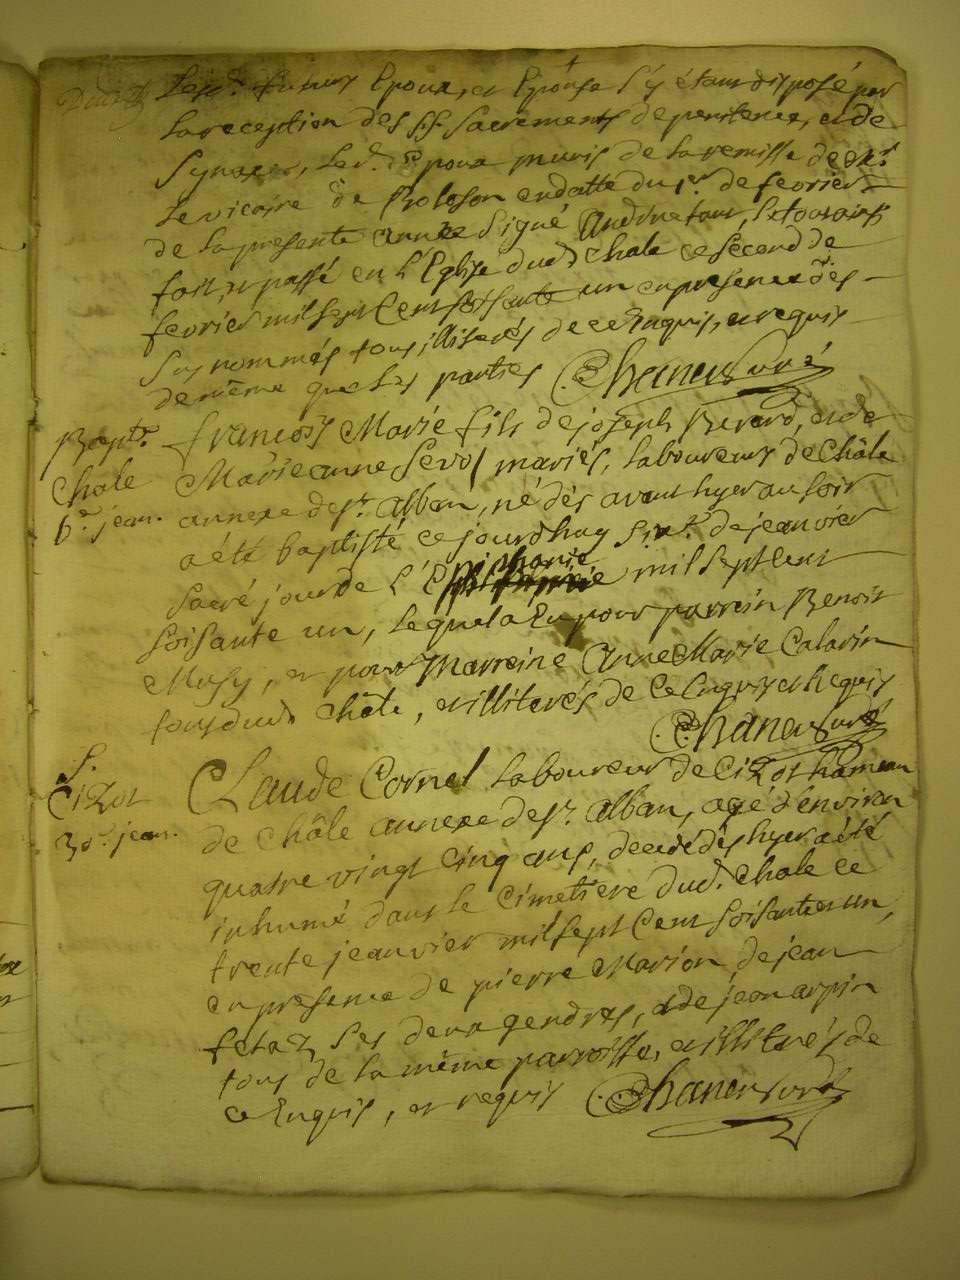 Lesd. futurs Epoux, et Epouse s'y étant disposé par
la reception des S.S. Sacrements de penitence, et de
Synaxe, led. Epoux muris de la remisse de Mr.
le vicaire de en datte du 1er. de fevrier
de la presente année signé le tout ainsi
fait, et passé en l'Eglise dud. Chale ce second de
fevrier mil sept Cent soisante un en presence des
sus nommés tous illiterés de ce Enquis, et requis
de même que les parties Chaneu Curé
Bapt.
Chale
6e. jean.
francois Marie fils de joseph Berard, et de
Marie anne Sevos mariés, laboureurs de Châle
annexe de St. alban, né dés avant hyer au soir
a été baptisté ce jourdhuy six.e de jeanvier
sacré jour de L'Epiphanie mil sept Cent
soisante un, lequel a Eu pour parrein Benoit
Musy, et pour Marreine Anne Marie Calarin
tous dud. Châle, et illiterés de ce Enquis et Requis
Chaneu Curé
S.
Cizot
30e. jean.
Claude Cornel laboureur de Cizot hameau
de Châle annexe de St. alban, agé d'environ
quatre vingt Cinq ans, decedé dés hyer a été
inhumé dans le Cimetiere dud. Chale ce
trente jeanvier mil sept Cent soisante et un,
en presence de pierre Marion, de jean
fetaz, ses deux gendres, et de jean arpin
tous de la même parroisse, et illiterés de
ce Enquis, et requis Chaneu Curé